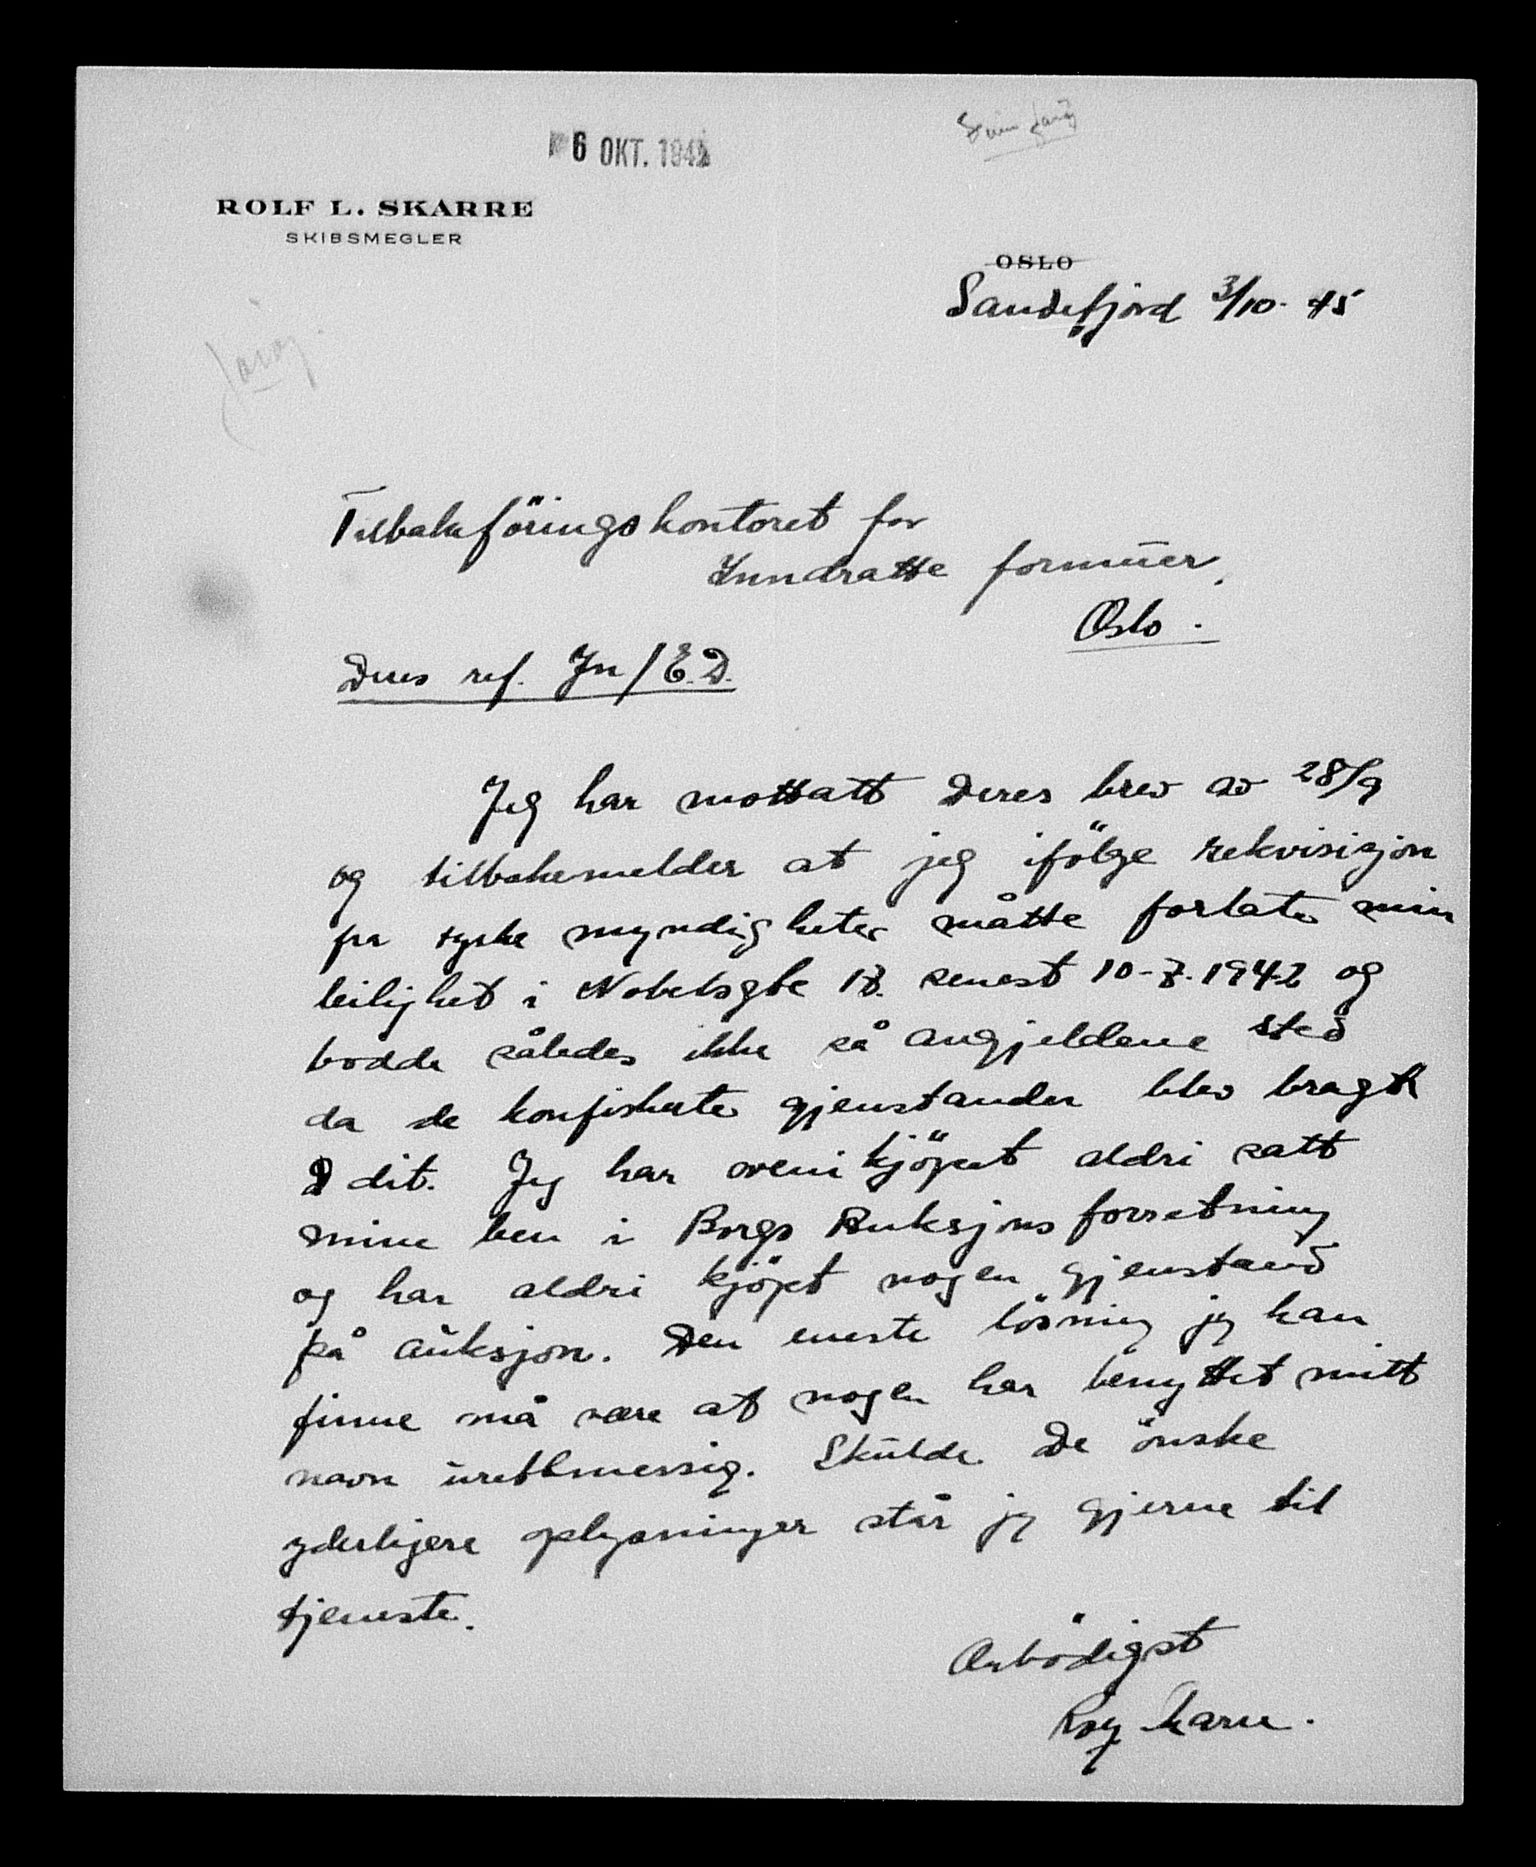 6 OKT. 1945
ROLF L. SKARRE
SKIBSMEGLER
OSLO
Sandefjord 3/10-45
Tilbakeföringskontoret for
Inndratte formuer,
Oslo.
Deres ref. Jn/E.D.
Jeg har mottatt Deres brev av 28/9
og tilbakemelder at jeg ifölge rekvisisjon
fra tyske myndigheter måtte forlate min
leilighet i Nobelsgte 18. senest 10-7.1942 og
bodde således ikke på angjeldene sted
da de konfiskerte gjenstander blev bragt
dit. Jeg har kjöpet aldri satt
mine ben i Borgs Auksjonsforretning
og har aldri kjöpt nogen gjenstand
på auksjon. Den eneste lösning jeg kan
finne må være at nogen har benyttet mitt
navn urettmessig. Skulde De önske
yderligere oplysninger står jeg gjerne til
tjeneste.
Ærbödigst
Skarre.